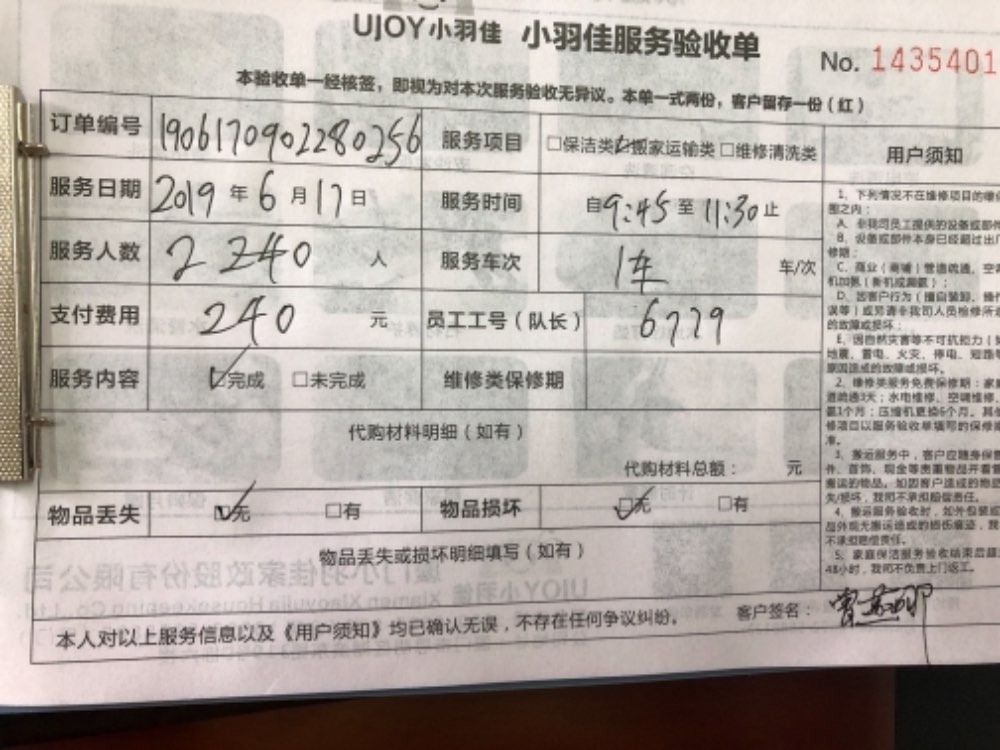 UJOY小羽佳 小羽佳服务验收单
No. 1435401
本验收单一经核签，即视为对本次服务验收无异议。本单一式两份，客户留存一份（红）
订单编号 1906170902280256 服务项目 □保洁类☑搬家运输类□维修清洗类
服务日期 2019年6月17日 服务时间 自9:45至11:30止
服务人数 2 240 人 服务车次 1车 车/次
支付费用 240 元 员工工号（队长） 6779
服务内容 ☑完成 □未完成 维修类保修期
代购材料明细（如有）
代购材料总额： 元
物品丢失 ☑无 □有 物品损坏 ☑无 □有
物品丢失或损坏明细填写（如有）
本人对以上服务信息以及《用户须知》均已确认无误，不存在任何争议纠纷。 客户签名：
用户须知
1、下列情况不在维修项目的维
围之内：
A、非我司员工提供的设备或部件
B、设备或部件本身已经超过出厂
修期；
C、商业（商铺）管道疏通，空调
机加氨（新机或漏氨）；
D、因客户行为（擅自装卸、操作
误等）或另请非我司人员检修所造
的故障或损坏；
E、因自然灾害等不可抗拒力（如
地震、雷电、火灾、停电、短路
原因造成的故障或损坏。
2、维修类服务免费保修期：家庭
道疏通3天；水电维修、空调维修、
氨1个月；压缩机更换6个月。其他
修项目以服务验收单填写的保修期
准。
3、搬运服务中，客户应随身保管
件、首饰、现金等贵重物品开着
搬运的物品。如因客户造成的物品
失/损坏，我司不承担赔偿责任。
4、搬运服务验收时，如外包装或
品外观无搬运造成的损伤痕迹，我
不承担赔偿责任。
5、家庭保洁服务验收结束后超过
48小时，我司不负责上门返工。